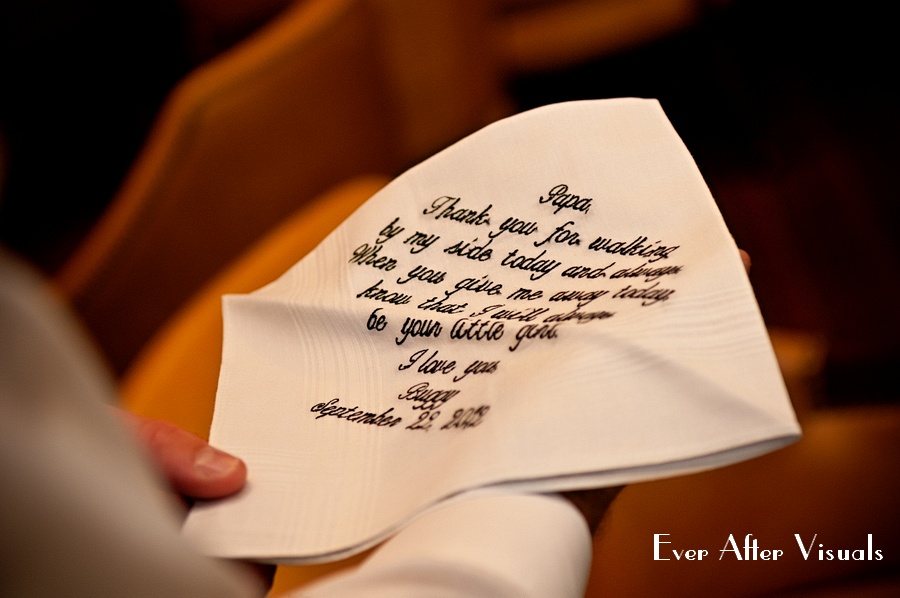 Papa,
Thank you for walking
by my side today and always
When you give me away today,
know that I will always
be your little girl.
I love you
Buggy
September 22, 2012
Ever After Visuals